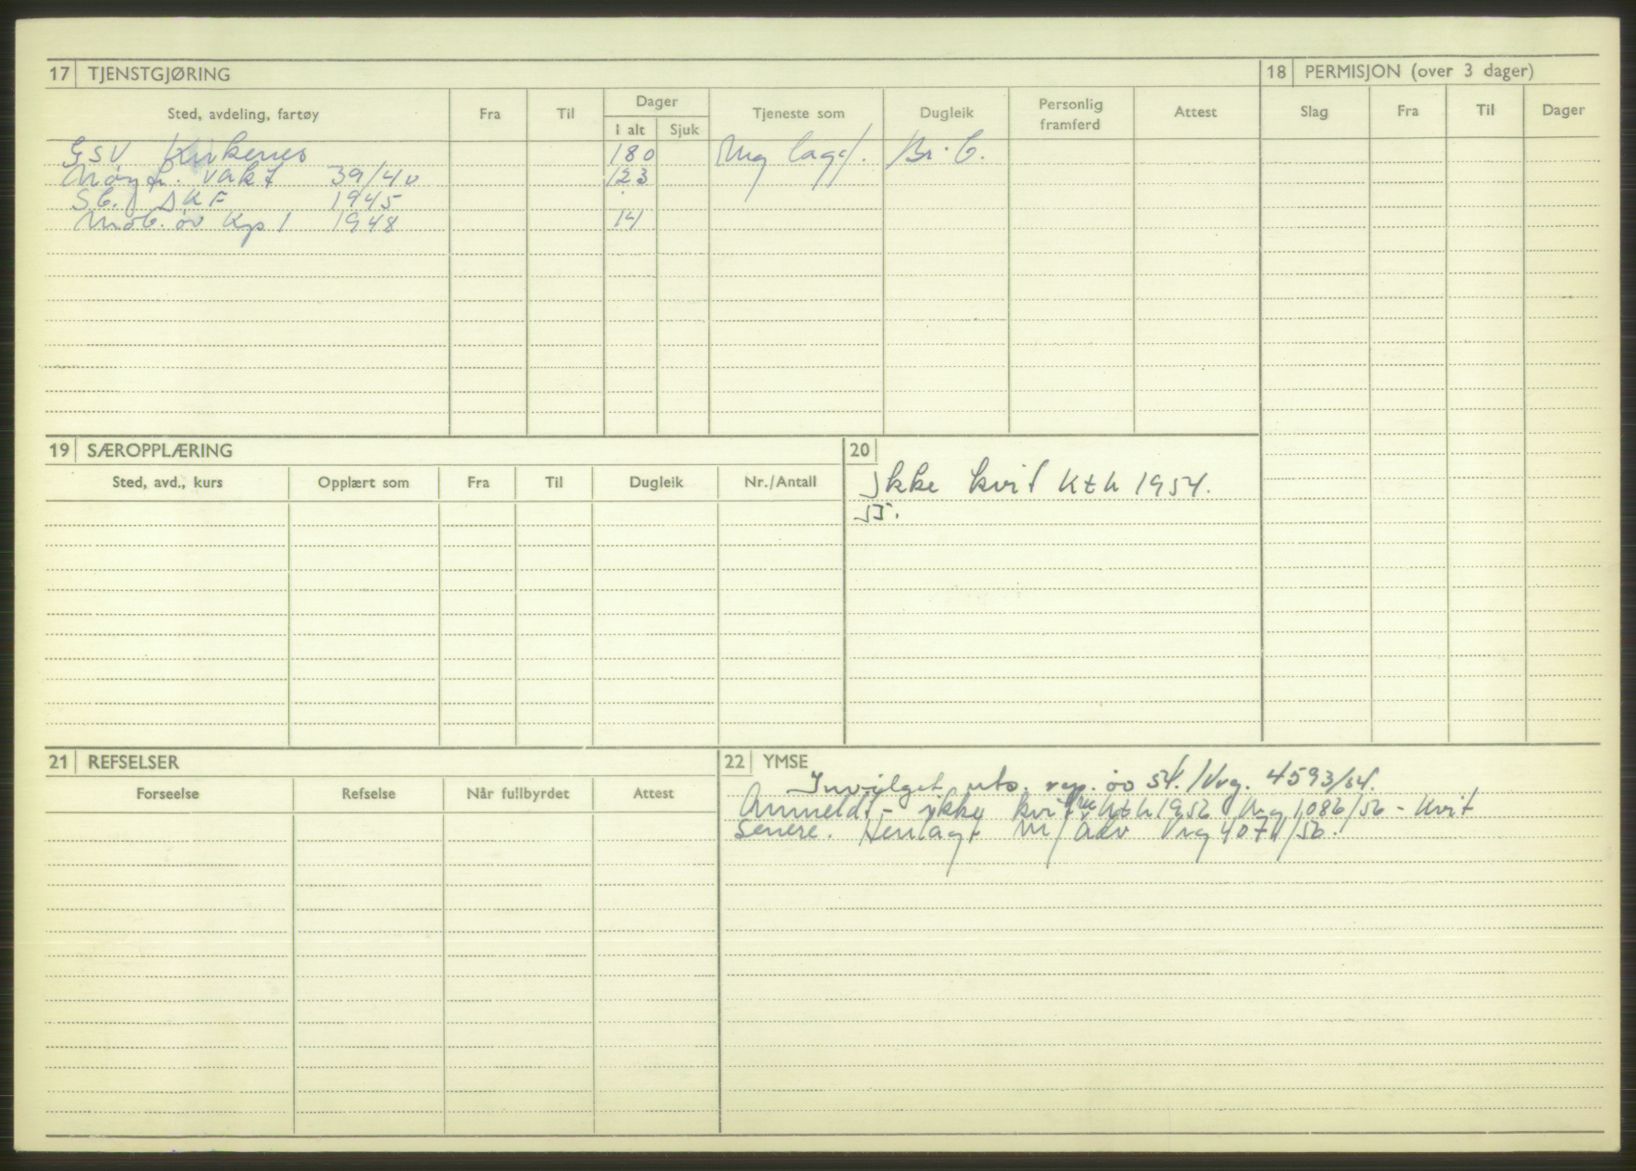 17 TJENSTGJØRING
18 PERMISJON (over 3 dager)
Sted, avdeling, fartøy Fra Til Dager I alt Sjuk Tjeneste som Dugleik Personlig framferd Attest
Slag Fra Til Dager
GSV Kirkenes 180 Mg lagf. Br. b.
Nøyt. vakt 39/40 123
Sb. DKF 1945
Mob. øv Kp 1 1948 14
19 SÆROPPLÆRING
20
Sted, avd., kurs Opplært som Fra Til Dugleik Nr./Antall
Ikke kvit Kth 1954.
55.
21 REFSELSER
22 YMSE
Forseelse Refselse Når fullbyrdet Attest
Innvilget uts. rep. øv 54. 4593/54.
Anmeldt - ikke kvit Kth 1956 1086/56 - Kvit
senere. Henlagt m/adv 4071/56.